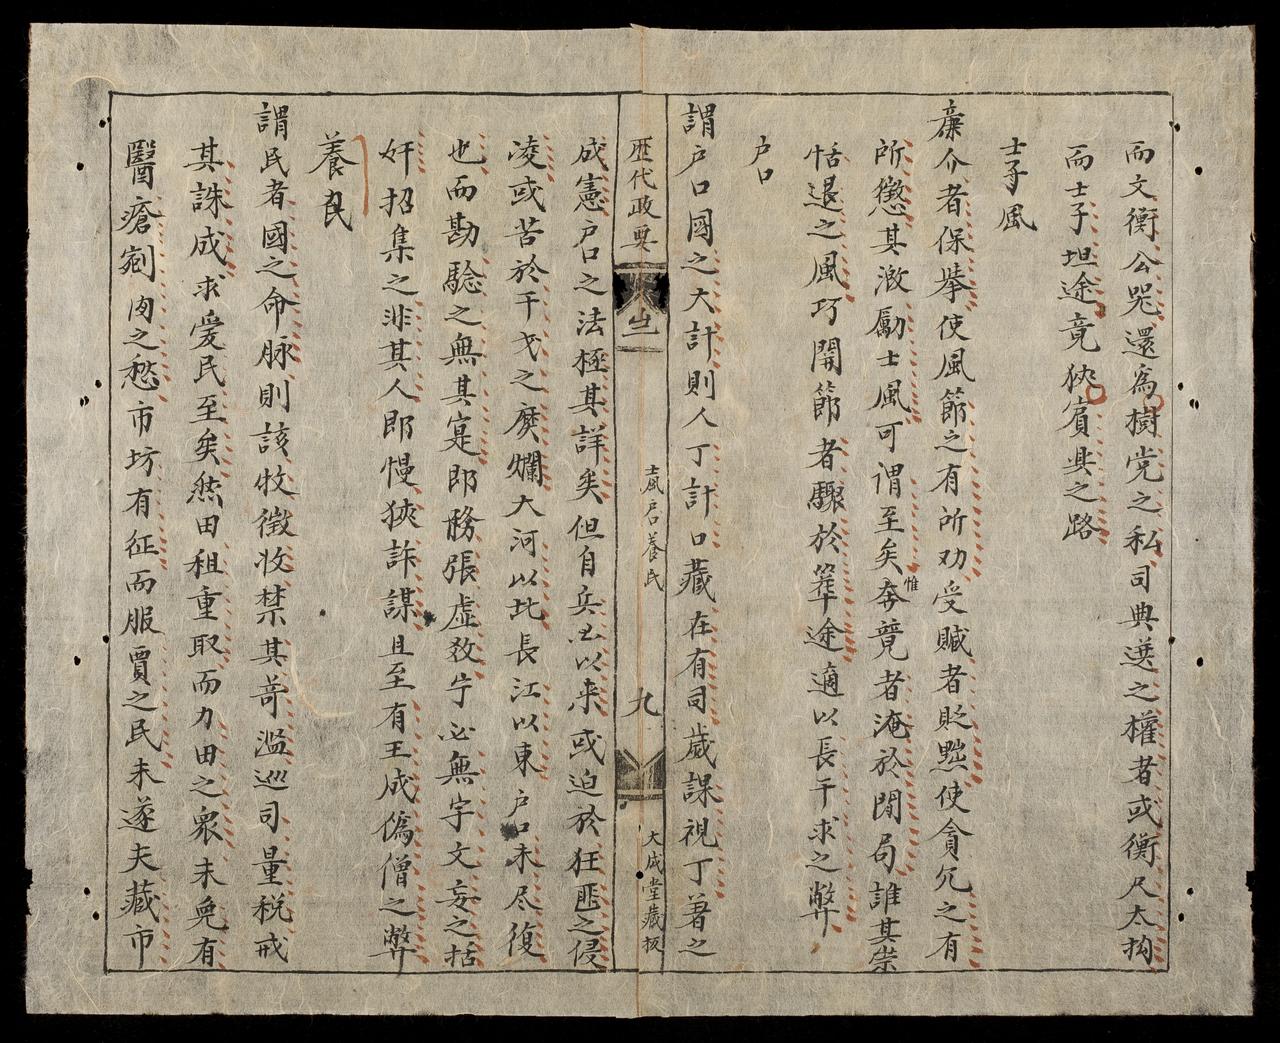 而文衡公器還爲樹党之私司典选之權者或衡尺太拘
而士子坦途竟狹賔具之路
士子風
廉介者保舉使風節之有所劝受贓者貶黜使貪冗之有
所懲其激勵士風可谓至矣惟奔競者淹於閒局誰其崇
恬退之風巧開節者驟於筆途適以長干求之弊
户口
謂户口國之大計則人丁計口藏在有司歲課視丁著之
歷代政要
士風户口養民
九
大成堂藏板
成憲户口之法極其詳矣但自兵火以来或迫於狂匪之侵
凌或苦於干戈之糜爛大河以北長江以東户口未尽復
也而勘騐之無其寔郎務張虚数宁必無宇文妄之括
奸招集之非其人郎慢狹詐謀且至有王成偽僧之弊
養民
謂民者國之命脉則該牧徵收禁其苛濫巡司量税戒
其誅成求愛民至矣然田租重取而力田之衆未免有
醫瘡剜肉之愁市坊有征而服賈之民未遂夫藏市